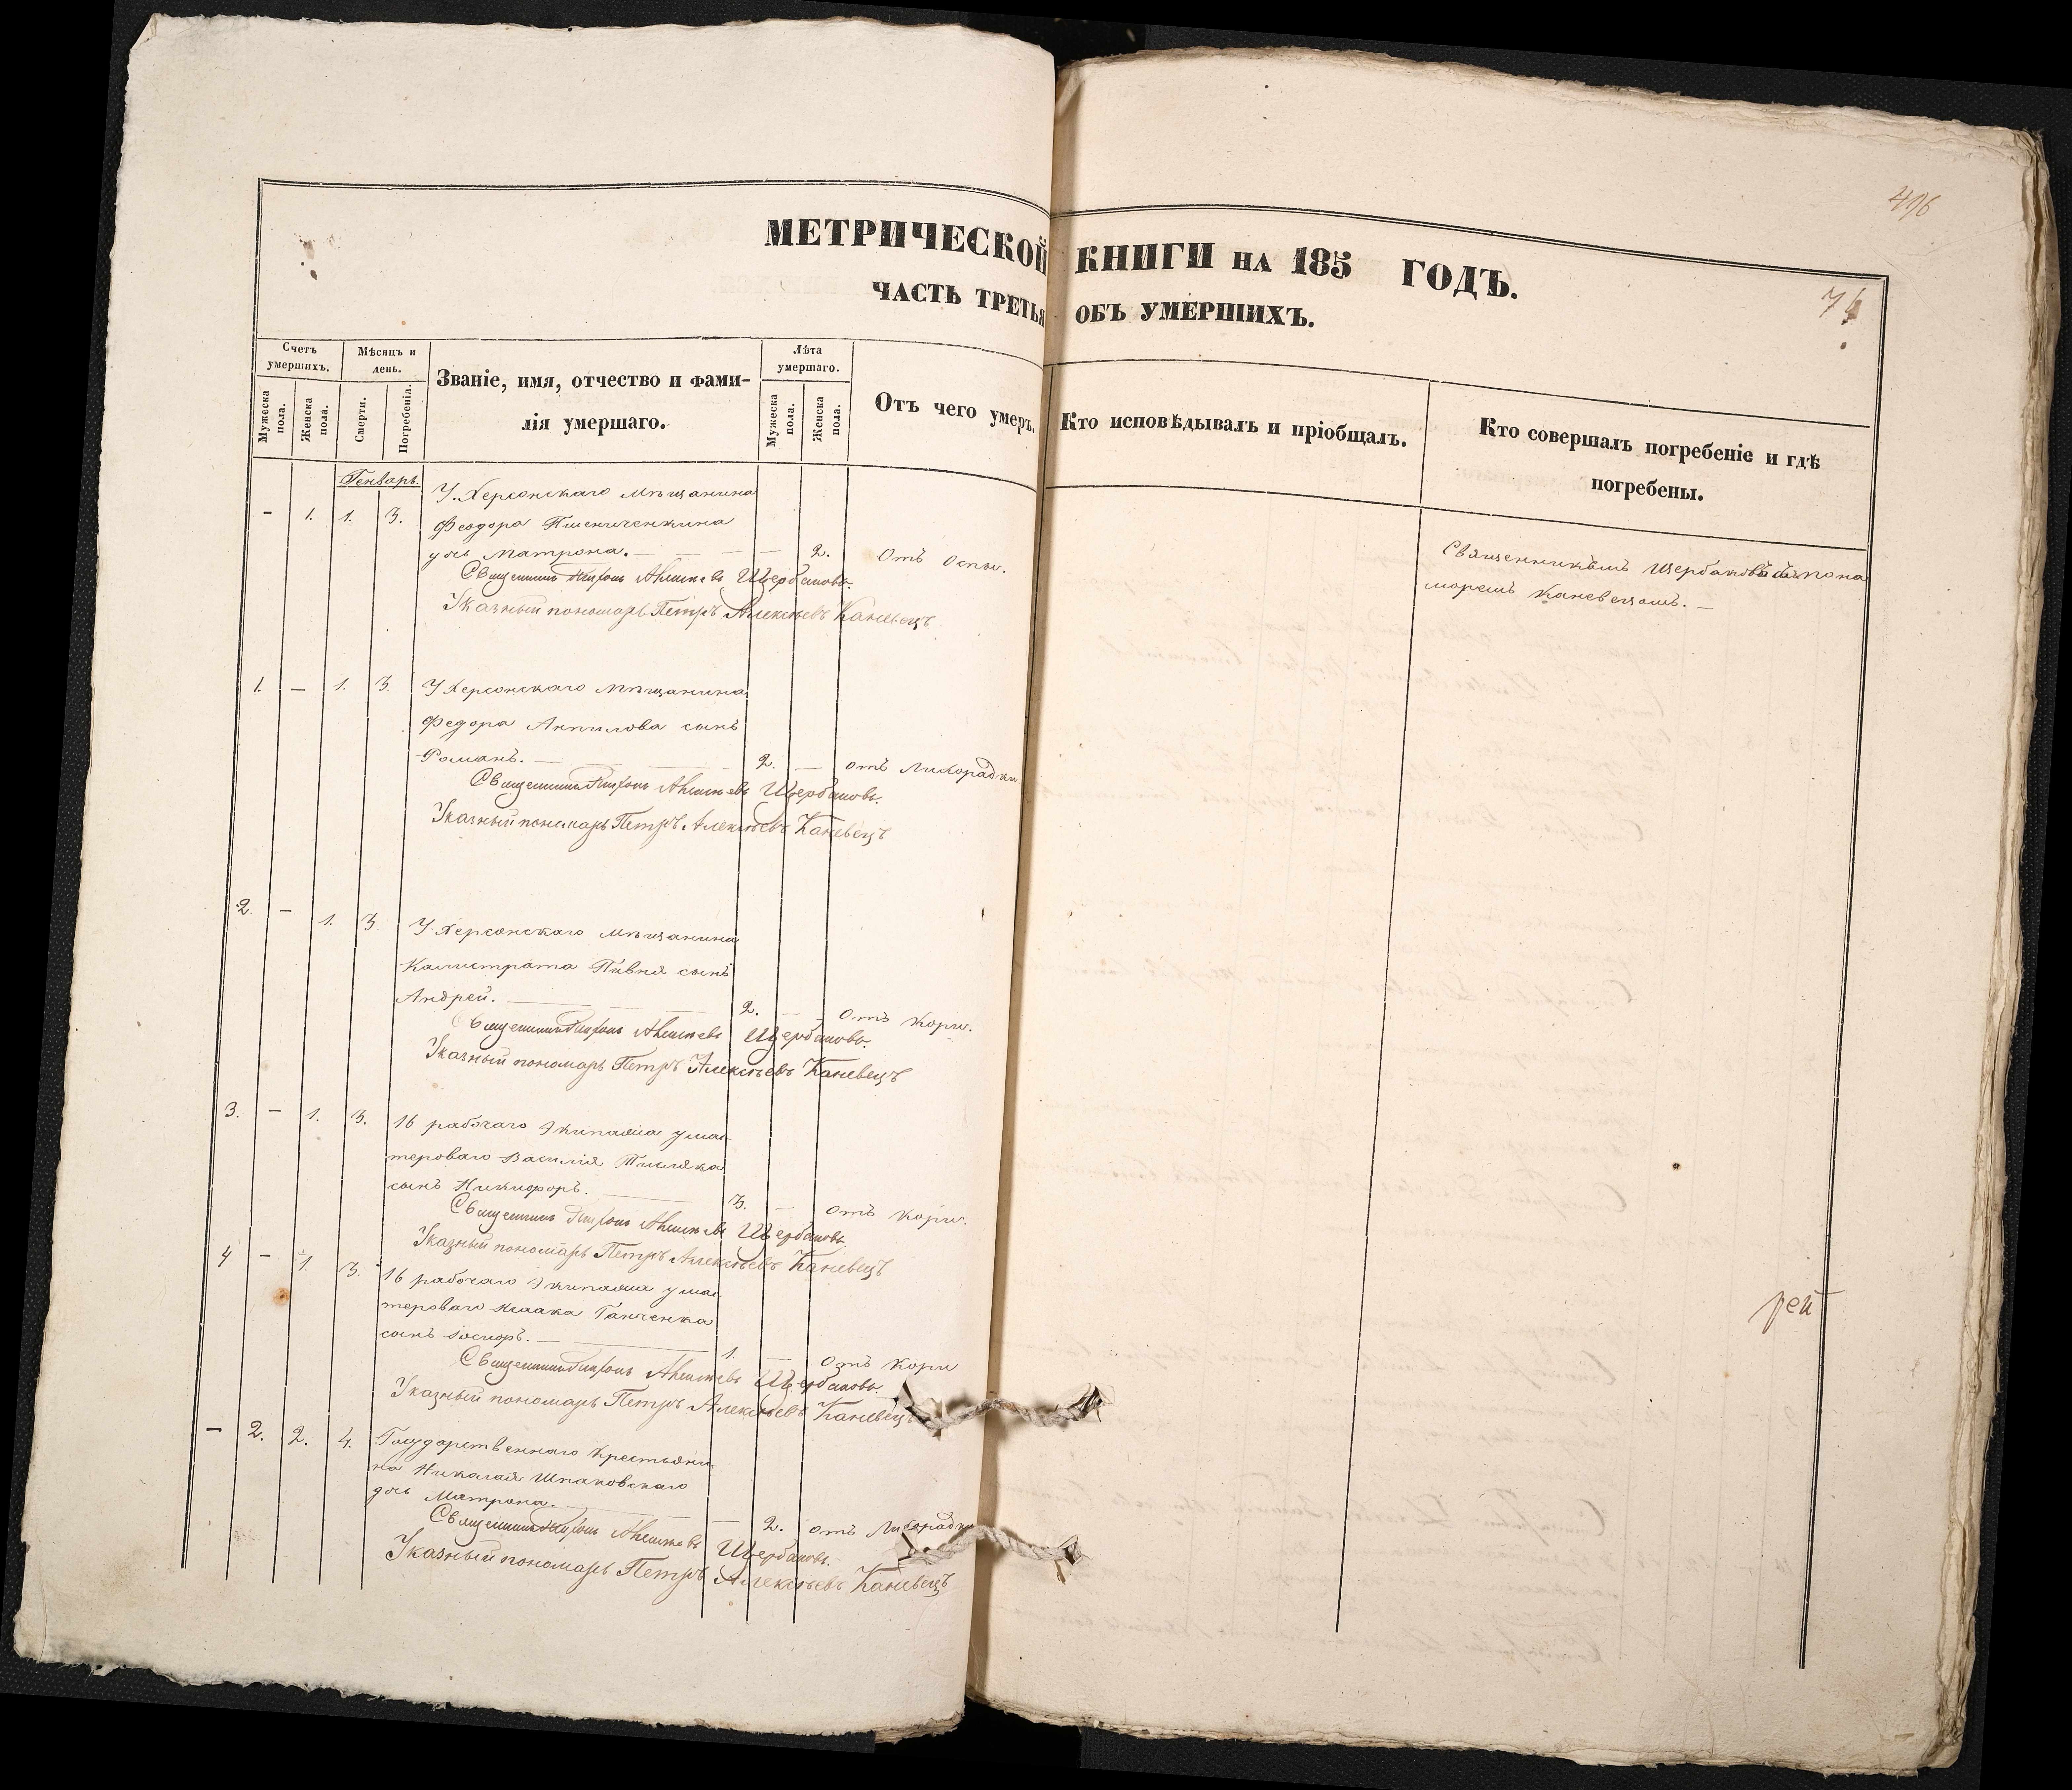 496
МЕТРИЧЕСКОЙ КНИГИ НА 185 ГОДЪ.
ЧАСТЬ ТРЕТЬЯ ОБЪ УМЕРШИХЪ.
Счетъ умершихъ.
Мужеска пола.
Женска пола.
Мѣсяцъ и день.
Смерти.
Погребенія.
Званіе, имя, отчество и фами-
лія умершаго.
Лѣта умершаго.
Мужеска пола.
Женска пола.
Отъ чего умеръ.
Кто исповѣдывалъ и пріобщалъ.
Кто совершалъ погребеніе и гдѣ
погребены.
Генварь
У Херсонскаго мѣщанина
- 1. 1. 3. Феодора
дочь Матрона. — 2. Отъ Оспы.
Священникъ Алексѣевъ Щербаковъ.
Указный пономарь Петръ Алексѣевъ Каневецъ
Священникомъ Щербаковымъ пона
моремъ Каневецомъ. —
1. — 1. 3. У Херсонскаго мѣщанина
Федора Анпилова сынъ
Романъ. — 2. — отъ Лихорадки.
Священникъ Алексѣевъ Щербаковъ.
Указный пономарь Петръ Алексѣевъ Каневецъ
2. — 1. 3. У Херсонскаго мѣщанина
Калистрата Пивня сынъ
Андрей. — 2. — Отъ Кори.
Священникъ Алексѣевъ Щербаковъ.
Указный пономарь Петръ Алексѣевъ Каневецъ
3. — 1. 3. 16 рабочаго Экипажа у мас-
тероваго Василія
сынъ Никифоръ. — 3. — Отъ Кори.
Священникъ Алексѣевъ Щербаковъ
Указный пономарь Петръ Алексѣевъ Каневецъ
4 — 1. 3. 16 рабочаго Экипажа у мас-
тероваго Исаака Ганченка
сынъ Іосифъ. — 1. — Отъ Кори
Священникъ Алексѣевъ Щербаковъ.
Указный пономарь Петръ Алексѣевъ Каневецъ
— 2. 2. 4. Государственнаго Крестьяни-
на Николая Шпаковскаго
дочь Матрона. — 2. отъ Лихорадки
Священникъ Алексѣевъ Щербаковъ.
Указный пономарь Петръ Алексѣевъ Каневецъ
рей